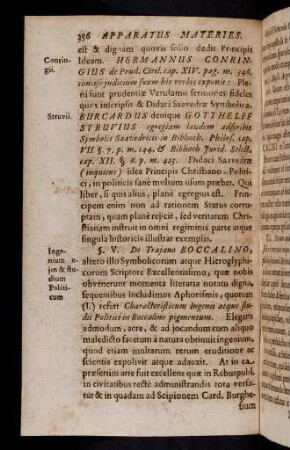 356 APPARATUS MATERIES.
est & dignam quovis solio dedit Principis
Conrin-
gii.
Ideam. HERMANNUS CONRIN-
GIUS de Prud. Civil. cap. XIV. pag. m. 346.
concise judicium suum his verbis exponit: Ple-
ni sunt prudentiæ Verulamii sermones fideles
quos inscripsit & Didaci Saavedræ Symbola.
Struvii.
BURCARDUS denique GOTTHELFF
STRUVIUS egregiam laudem adscribit
Symbolis Saavedricis in Biblioth. Philos. cap.
VII. §. 7. p. m. 144. & Biblioth. Jurid. Select.
cap. XII. §. 6. p. m. 423. Didaci Saavedræ
(inquiens) idea Principis Christiano-Politi-
ci, in politicis sane multum usum præbet. Qui
liber, si quis alius, planè egregius est. Prin-
cipem enim non ad rationem Status cor-
ruptam, quam planè rejicit, sed veritatem Chri-
stianam instruit in omni regiminis parte atque
singula historicis illustrat exemplis.
Inge-
nium e-
jus & stu-
dium
Politi-
cum
§. V. De Trajano BOCCALINO,
altero illo Symbolicorum atque Hieroglyphi-
corum Scriptore Excellentissimo, quæ nobis
obvenerunt momenta literaria notatu digna,
sequentibus includimus Aphorismis, quorum
(I.) refert Characteristicum Ingenii atque stu-
dii Politici in Boccalino pigmentum. Elegans
admodum, acre, & ad jocandum cum aliquo
maledicto facetum à natura obtinuit ingenium,
quod etiam multarum rerum eruditione ac
scientia expolivit atque adauxit. At in ca-
præsertim arte fuit excellens quæ in Rebuspubl.
in civitatibus rectè administrandis tota versa-
tur & in quadam ad Scipionem Card. Burghe-
sium